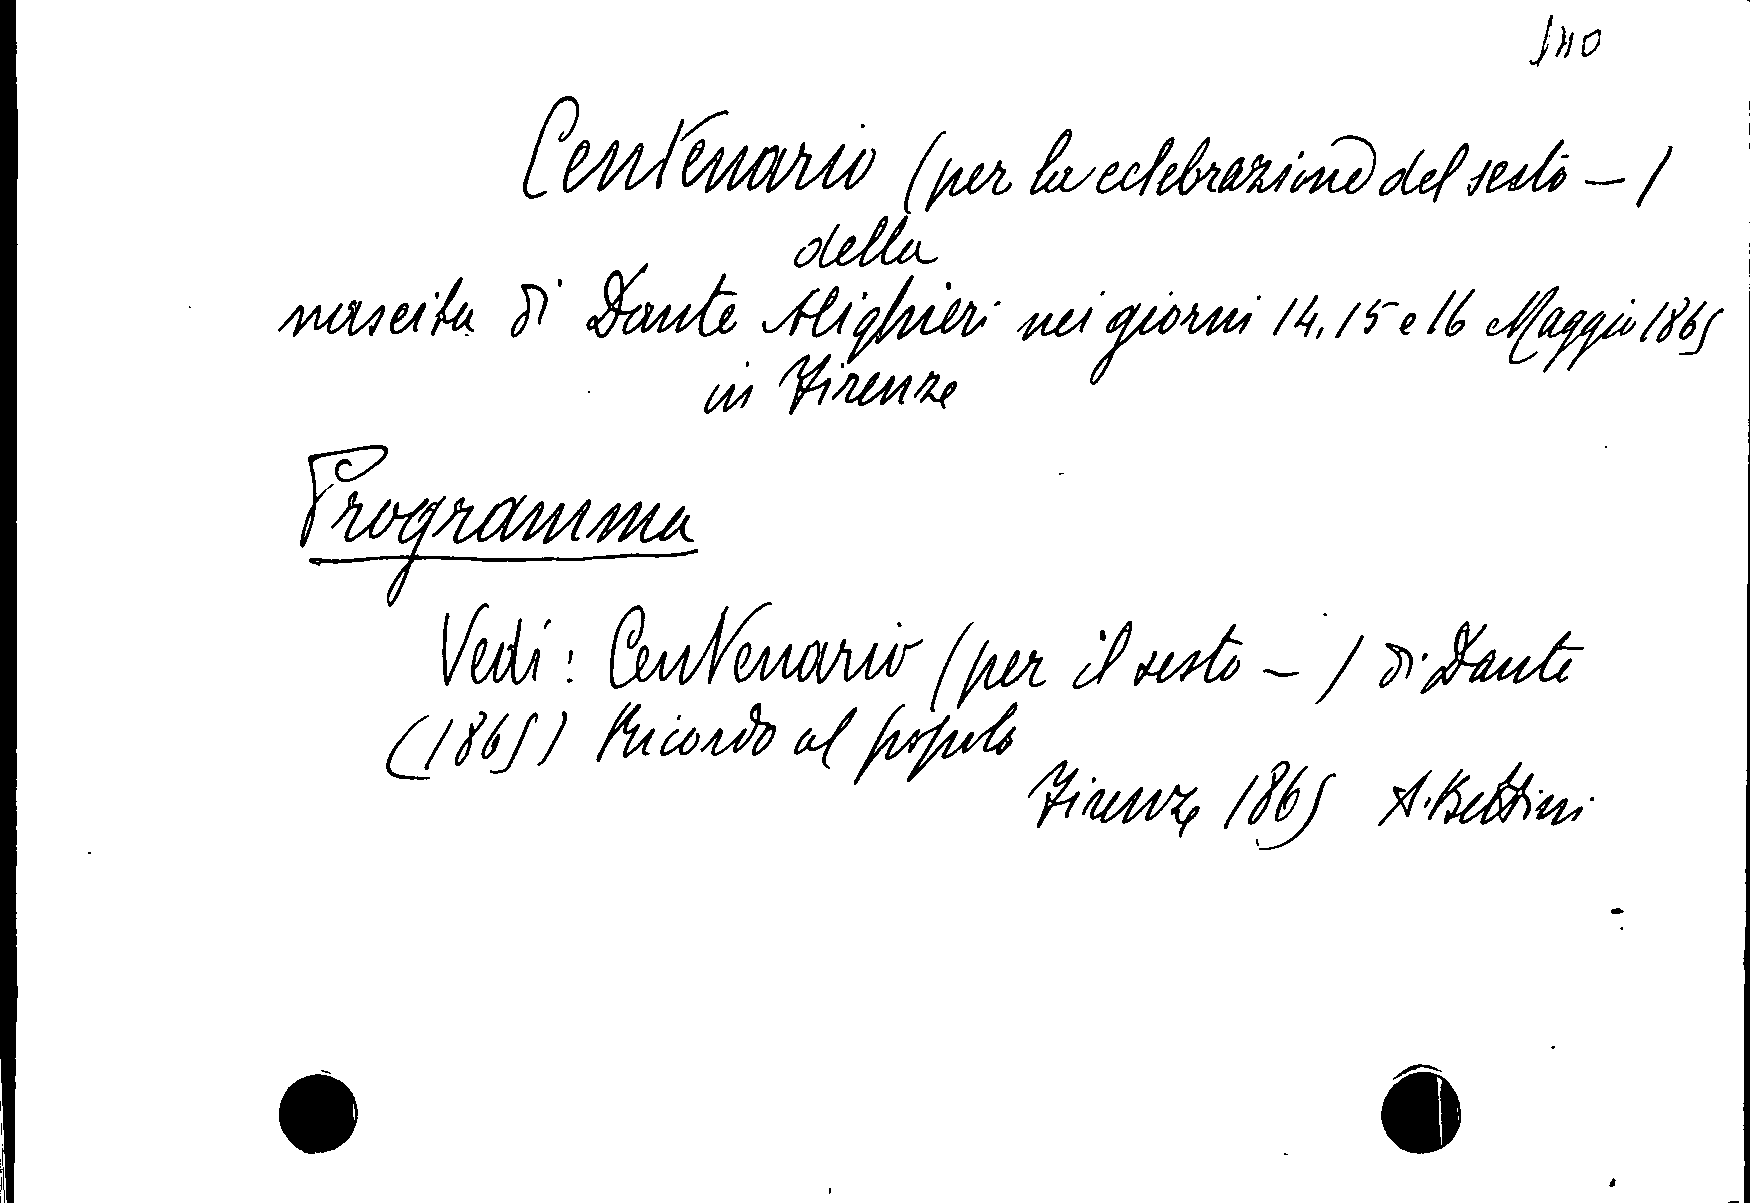 Centenario (per la celebrazione del sesto — )
della
nascita di Dante Alighieri nei giorni 14, 15 e 16 Maggio 1865
in Firenze
Programma
Vedi: Centenario (per il sesto — ) di Dante
(1865) Ricordo al popolo
Firenze 1865 A. Bettini